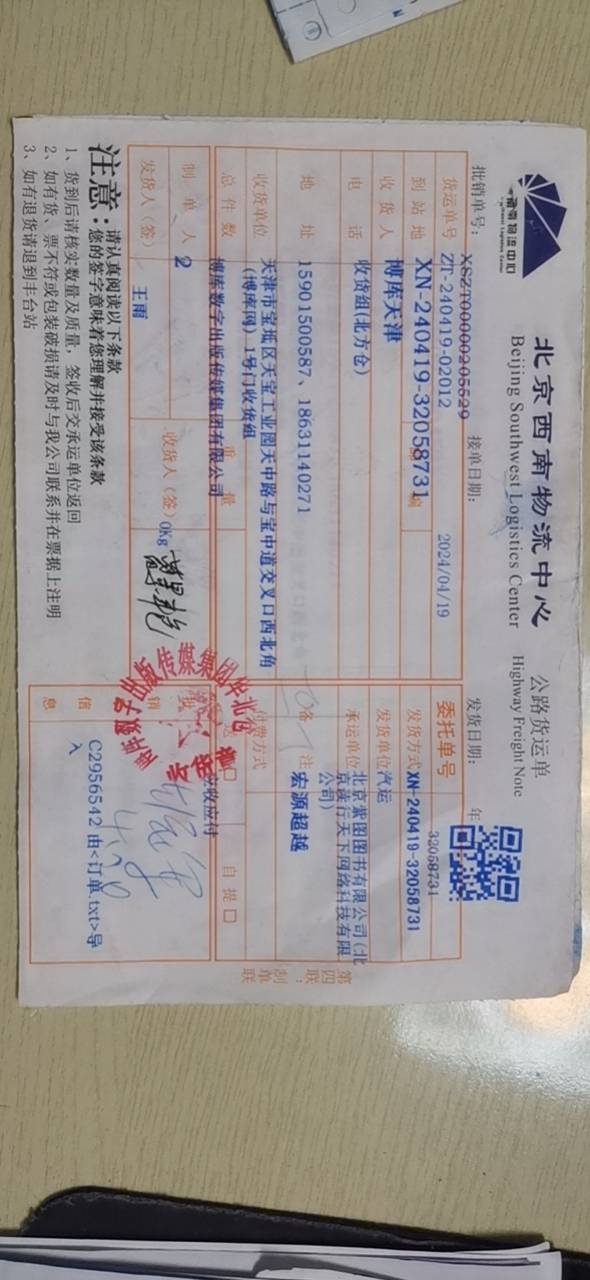 西南物流中心
北京西南物流中心
Beijing Southwest Logistics Center
公路货运单
Highway Freight Note
批销单号:
XSZT00000205529
接单日期:
发货日期:
年
货运单号
ZT-240419-02012
2024/04/19
委托单号
32058731
到站地
XN-240419-32058731
发货方式
XN-240419-32058731
收货人
博库天津
发货单位
汽运
电话
收货组(北方仓)
承运单位
北京紫图图书有限公司(北
京读行天下网络科技有限
公司)
地址
15901500587、18631140271
备注
宏源超越
收货单位
天津市宝坻区天宝工业园天中路与宝中道交叉口西北角
(博库网)1号门收货组
付费方式
总件数
博库数字出版传媒集团有限公司
重量
自提口
制单人
2
收货人(签)
0Kg
应收应付
发货人(签)
王雨
批销信息
C2956542 由<订单.txt>导
入
注意:
请认真阅读以下条款
您的签字意味着您理解并接受该条款
1、货到后请核实数量及质量,签收后交承运单位返回
2、如有货、票不符或包装破损请及时与我公司联系并在票据上注明
3、如有退货请退到丰台站
第四联:制单联